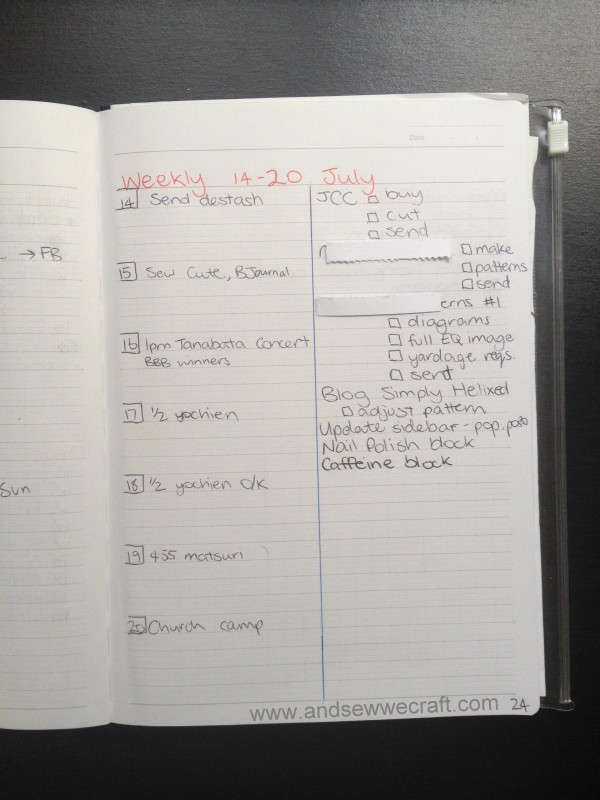 Date
Weekly 14-20 July
14 Send destash
15 Sew Cute, BJournal
16 1pm Tanabata Concert
BBB winners
17 1/2 yochien
18 1/2 yochien c/k
19 455 matsuri
20 Church camp
JCC □ buy
□ cut
□ send
□ make
□ patterns
□ send
erns #1
□ diagrams
□ full EQ image
□ yardage reqs.
□ send
Blog Simply Helixed
□ adjust pattern
Update sidebar - pop. posts
Nail Polish block
Caffeine block
→ FB
Sun
www.andsewwecraft.com
24